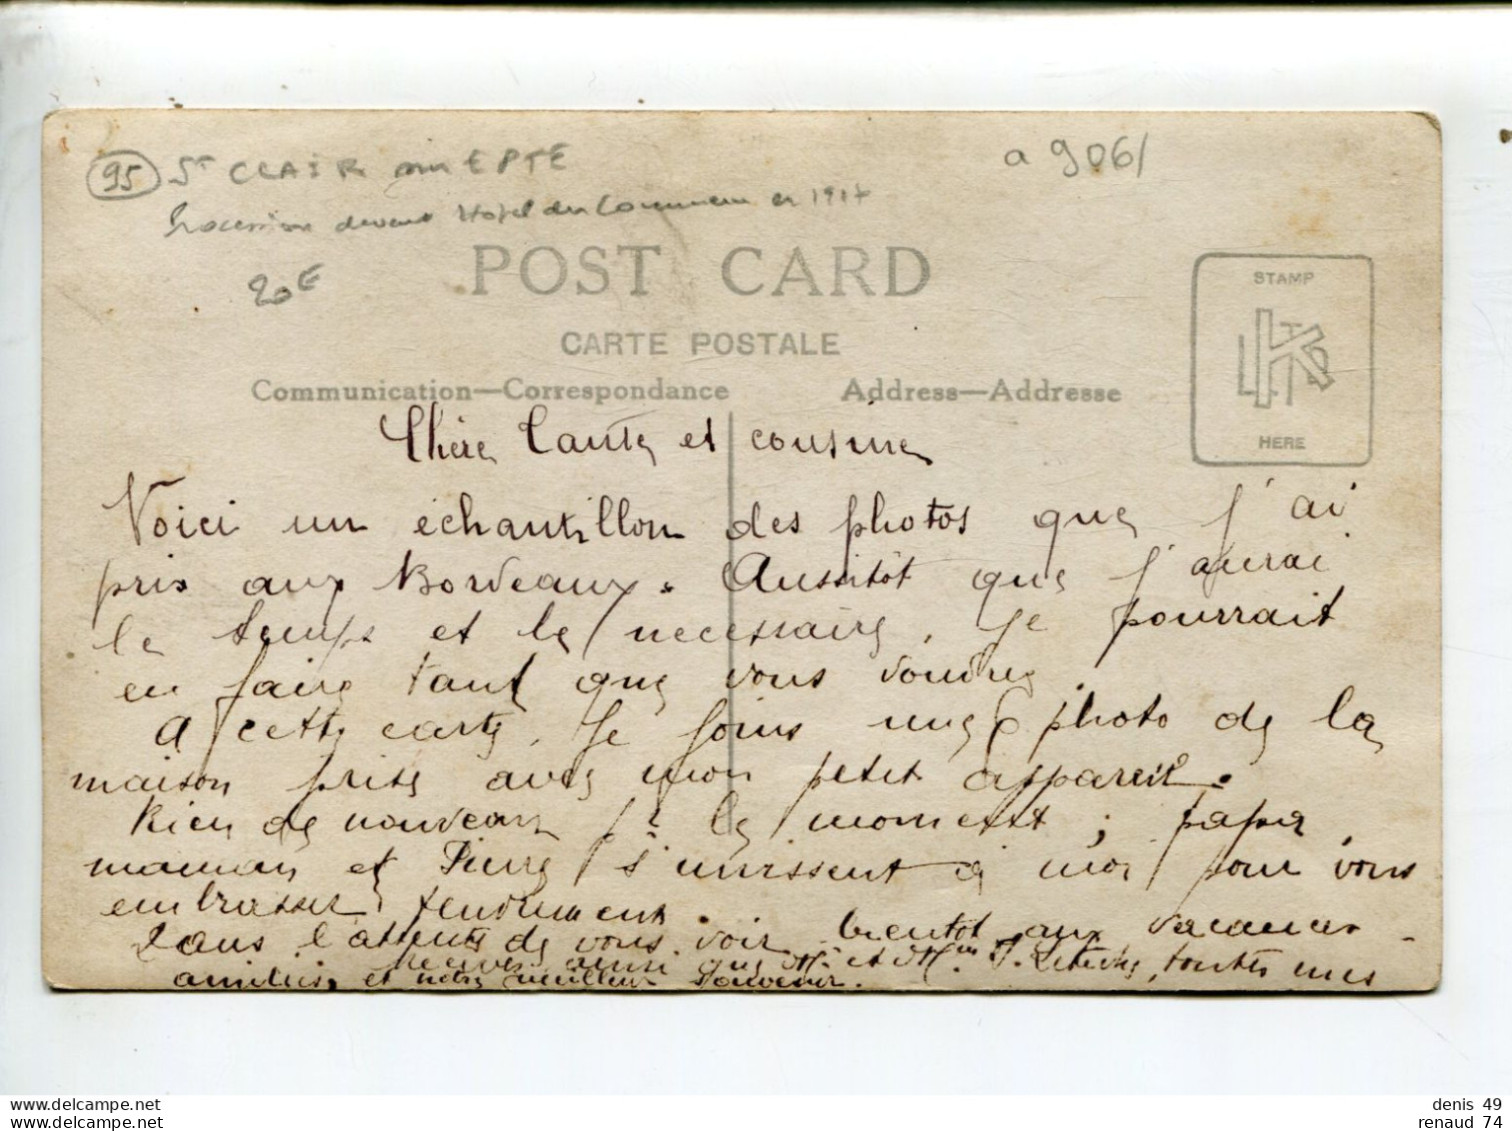 95 St CLAIR sur EPTE
a 9061
Procession devant Hotel du Commerce en 1917
20€
POST CARD
CARTE POSTALE
Communication—Correspondance
Address—Addresse
STAMP
HERE
Chère Tante et cousine
Voici un échantillon des photos que j'ai
pris aux Bordeaux. Aussitôt que j'aurai
le temps et le necessaire, Je pourrait
en faire tant que vous voudrez
A cette carte, Je joins une photo de la
maison prise avec mon petit appareil.
Rien de nouveau pr le moment ; papa,
maman et Pierre s'unissent à moi pour vous
embrasser tendrement.
Dans l'attente de vous voir bientot aux vacances
Recevez ainsi que Mr et Mme toutes mes
amitiés et notre meilleur souvenir.
denis 49
renaud 74
renaud 74